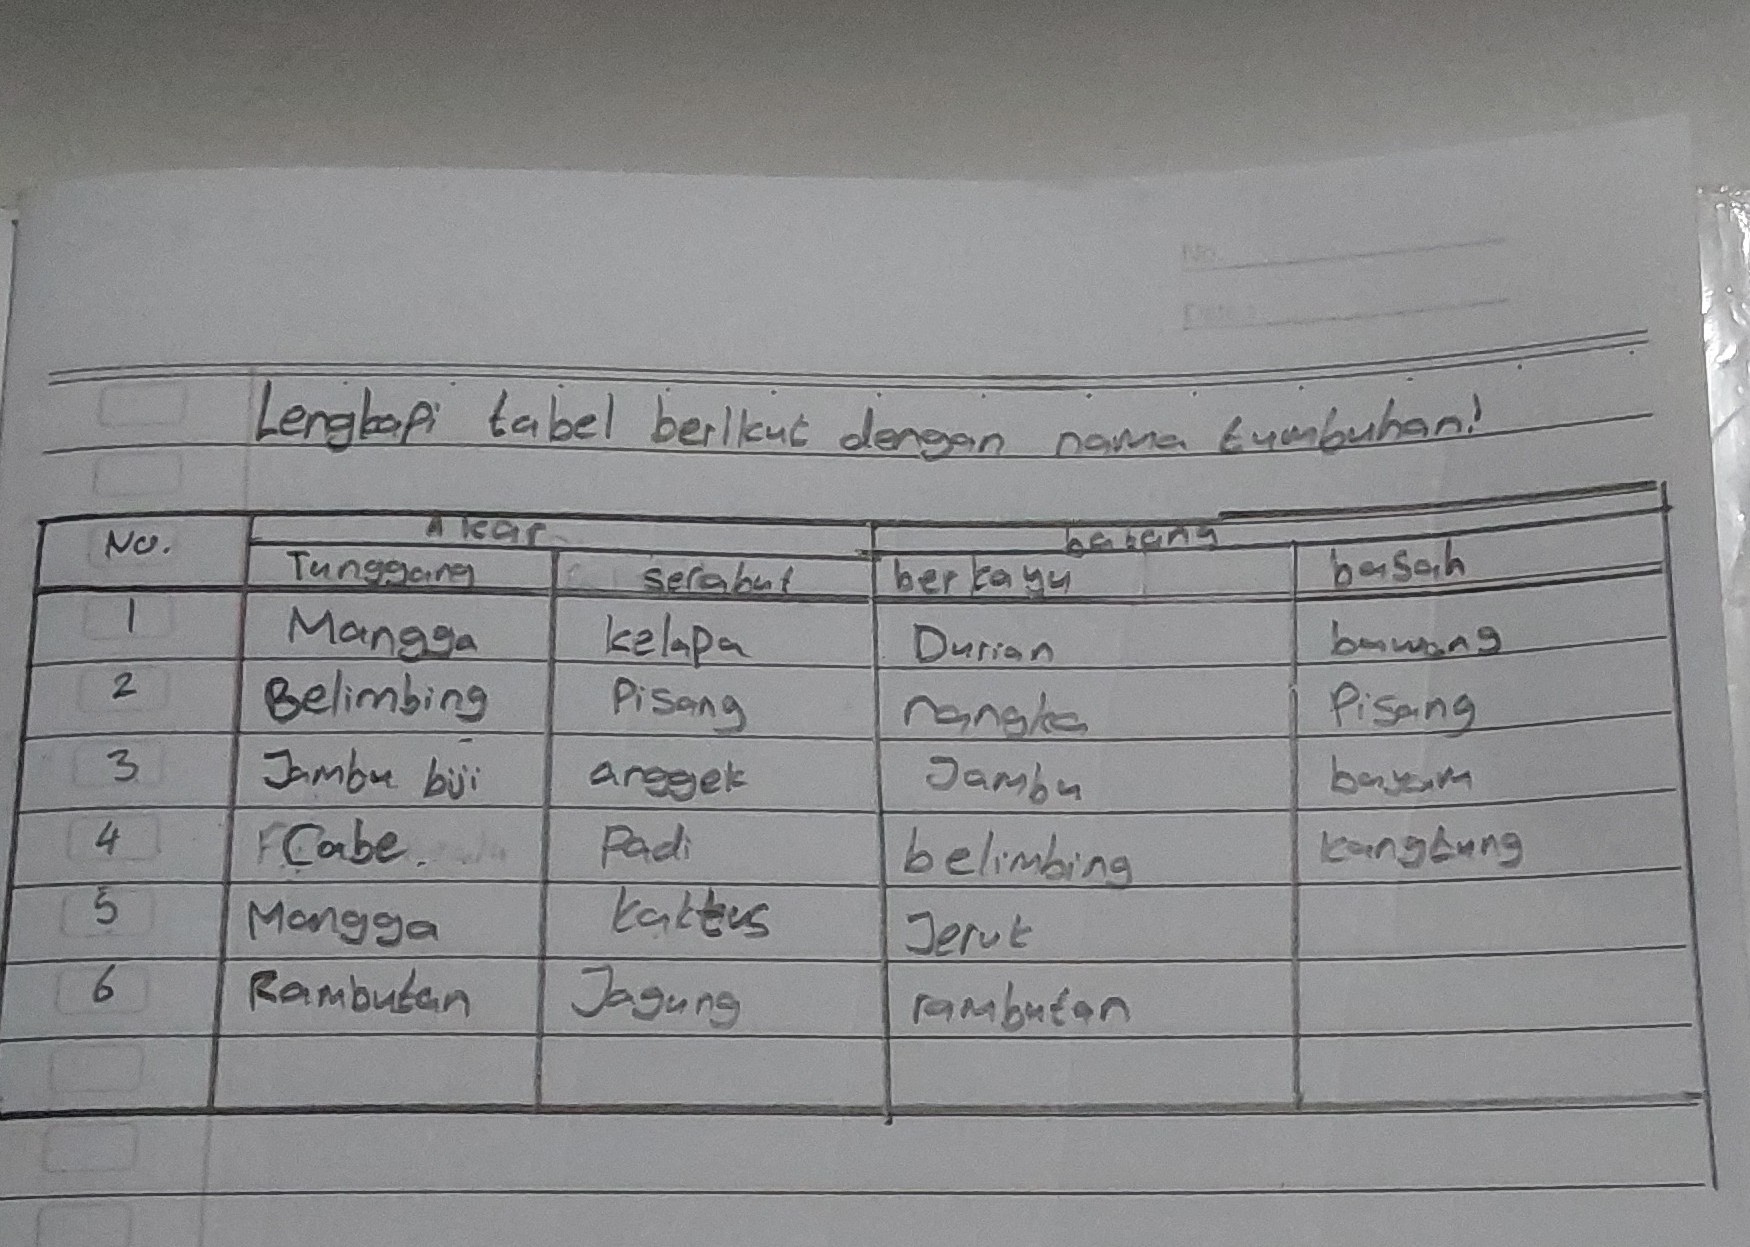 No.
Date
Lengkapi tabel berikut dengan nama tumbuhan!
No. Akar batang
Tunggang serabut berkayu basah
1 Mangga kelapa Durian bawang
2 Belimbing Pisang nangka Pisang
3 Jambu biji anggek Jambu bayam
4 Cabe. Padi belimbing kangkung
5 Mangga kaktus Jeruk
6 Rambutan Jagung rambutan